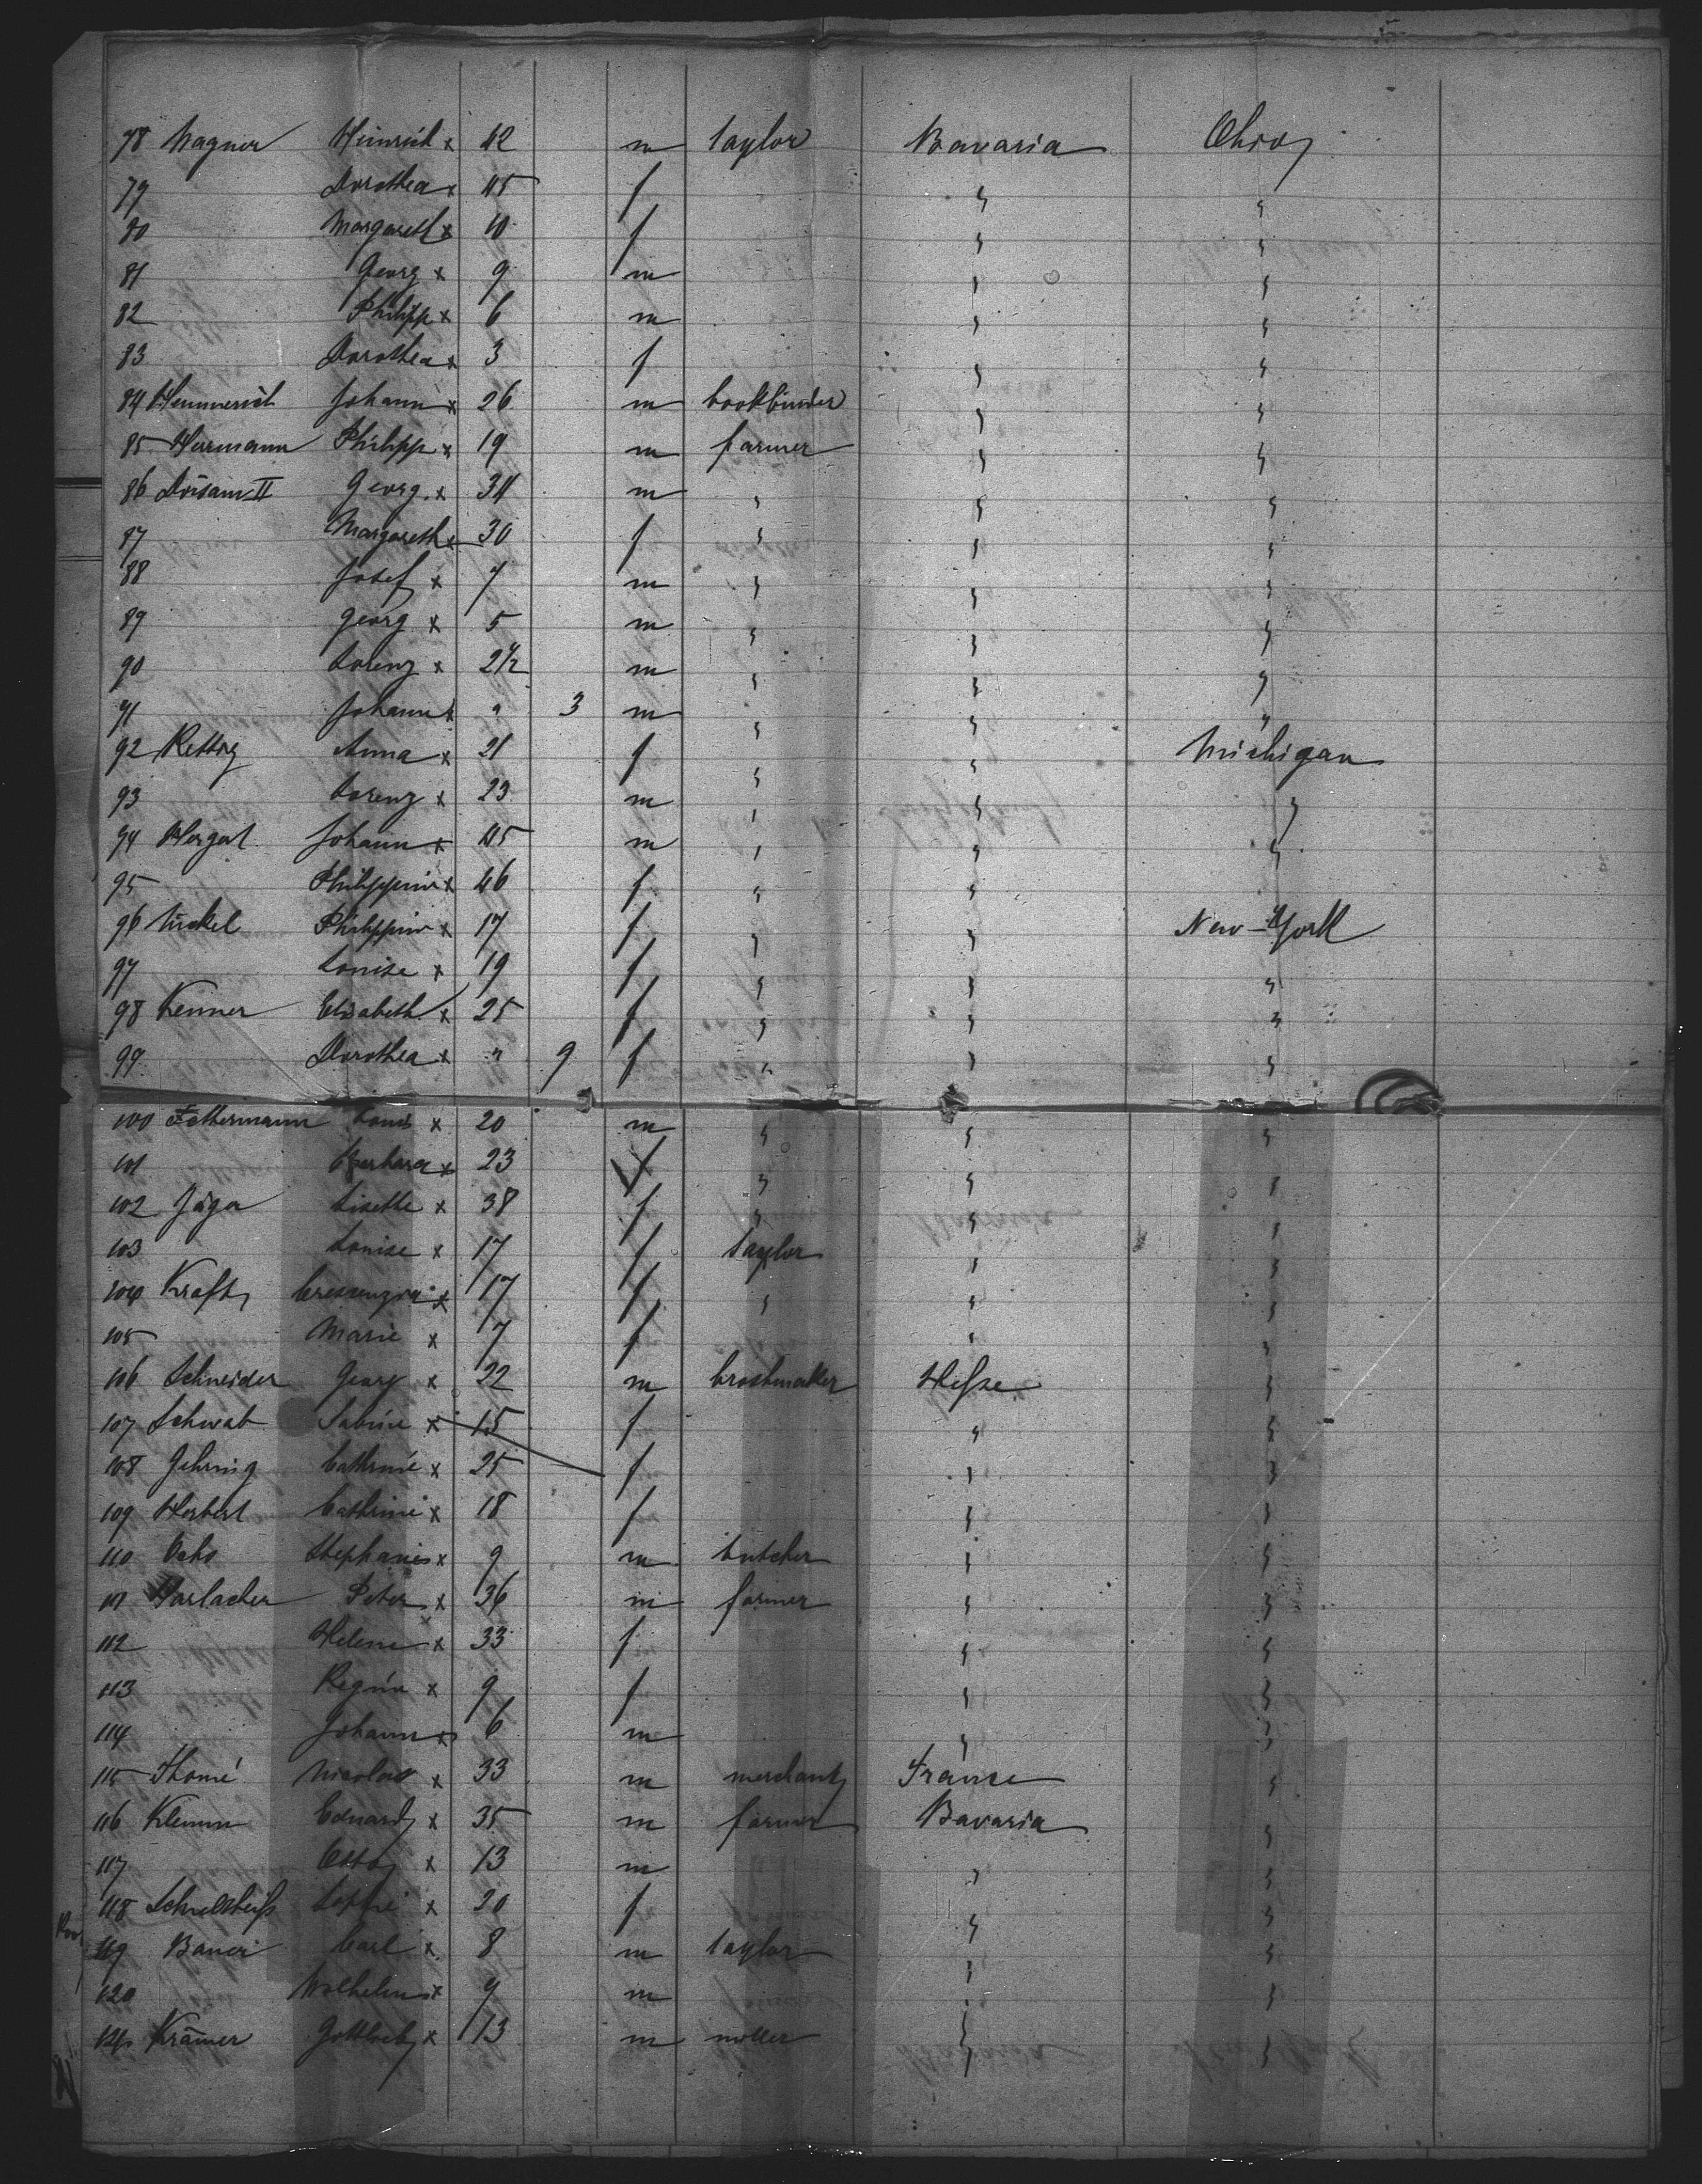 78 Wagner Heinrich x 42 m taylor Bavaria Ohio
79 Dorothea x 45 f " "
80 Margareth x 10 f " "
81 Georg x 9 m " "
82 Philipp x 6 m " "
83 Dorothea x 3 f " "
84 Hemmerich Johann x 26 m bookbinder " "
85 Herrmann Philipp x 19 m farmer " "
86 Dörsam II Georg x 34 m " " "
87 Margareth x 30 f " " "
88 Josef x 7 m " " "
89 Georg x 5 m " " "
90 Lorenz x 2 1/2 m " " "
91 Johann x " 3 m " " "
92 Rettig Anna x 21 f " " Michigan
93 Lorenz x 23 m " " "
94 Hergert Johann x 45 m " " "
95 Philippine x 46 f " " "
96 Nickel Philippine x 17 f " " New-York
97 Louise x 19 f " " "
98 Kenner Elisabeth x 25 f " " "
99 Dorothea x " 9 f " " "
100 Fettermann Louis x 20 m " " "
101 Barbara x 23 f " " "
102 Jäger Lisette x 38 f " " "
103 Louise x 17 f Taylor " "
104 Kraft Crescenzia x 17 f " " "
105 Marie x 7 f " "
106 Schneider Georg x 22 m Hesse "
107 Schwab Sabine x 15 f " "
108 Gehrnig Cathrine x 25 f " "
109 Herbert Cathrine x 18 f " "
110 Ochs Stephanie x 9 m butcher " "
111 Harlacher Peter x 36 m farmer " "
112 Helene x 33 f " "
113 Regina x 9 f " "
114 Johann x 6 m " "
115 Thomé Nicolas x 33 m merchant France "
116 Klemm Eduard x 35 m farmer Bavaria "
117 Otto x 13 m " "
118 Sophie x 20 f " "
119 Bauer Carl x 8 m taylor " "
120 Wilhelm x 9 m " "
121 Krämer Gottlieb x 13 m miller " "